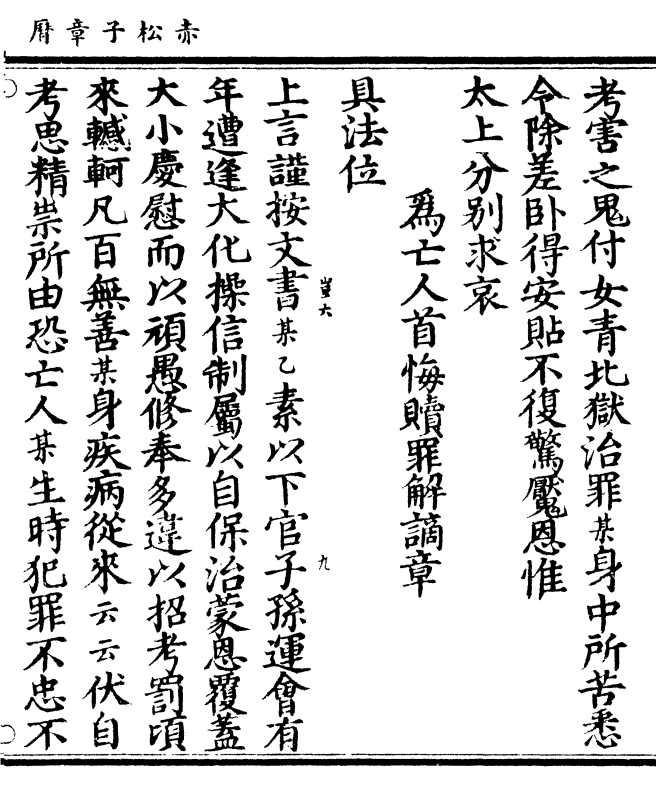 赤松子章曆
考害之鬼付女青北獄治罪某身中所苦悉
令除差卧得安貼不復驚魘恩惟
太上分別求哀
爲亡人首悔贖罪解謫章
具法位
上言謹按文書某乙素以下官子孫運會有
豈六
九
年遭逢大化操信制屬以自保治蒙恩覆蓋
大小慶慰而以頑愚修奉多違以招考罰頃
來轗軻凡百無善某身疾病從來云云伏自
考思精祟所由恐亡人某生時犯罪不忠不